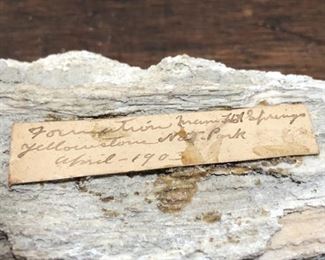 Formation Mam Hot Springs
Yellowstone Nat. Park
April - 1903